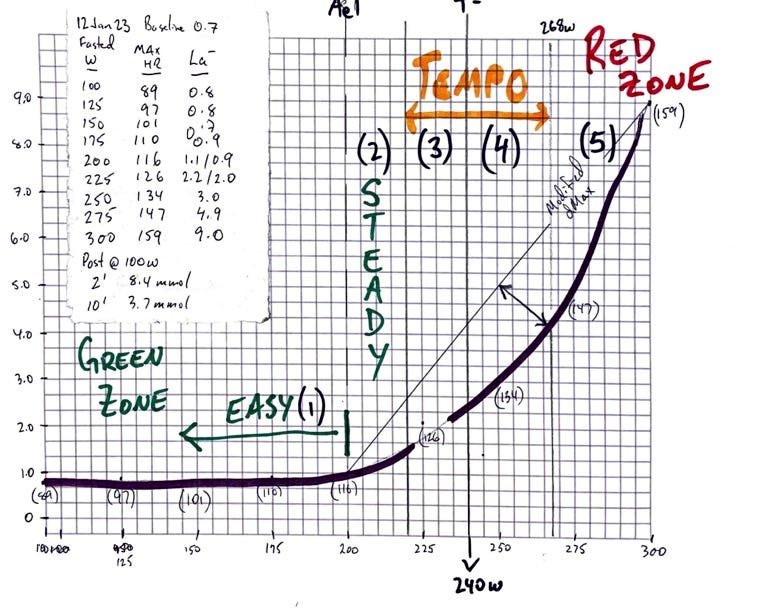 12 Jan 23 Baseline 0.7
Fasted
W MAX HR La-
100 89 0.8
125 97 0.8
150 101 0.7
175 110 0.9
200 116 1.1/0.9
225 126 2.2/2.0
250 134 3.0
275 147 4.9
300 159 9.0
Post @ 100w
2' 8.4 mmol
10' 3.7 mmol
268w
RED
ZONE
TEMPO
(2) (3) (4) (5)
(159)
STEADY
Modified
dMax
9.0
8.0
7.0
6.0
5.0
4.0
3.0
2.0
1.0
0
GREEN
ZONE
EASY (1)
(89) (97) (101) (110) (116) (126) (134) (147)
125 150 175 200 225 250 275 300
240w